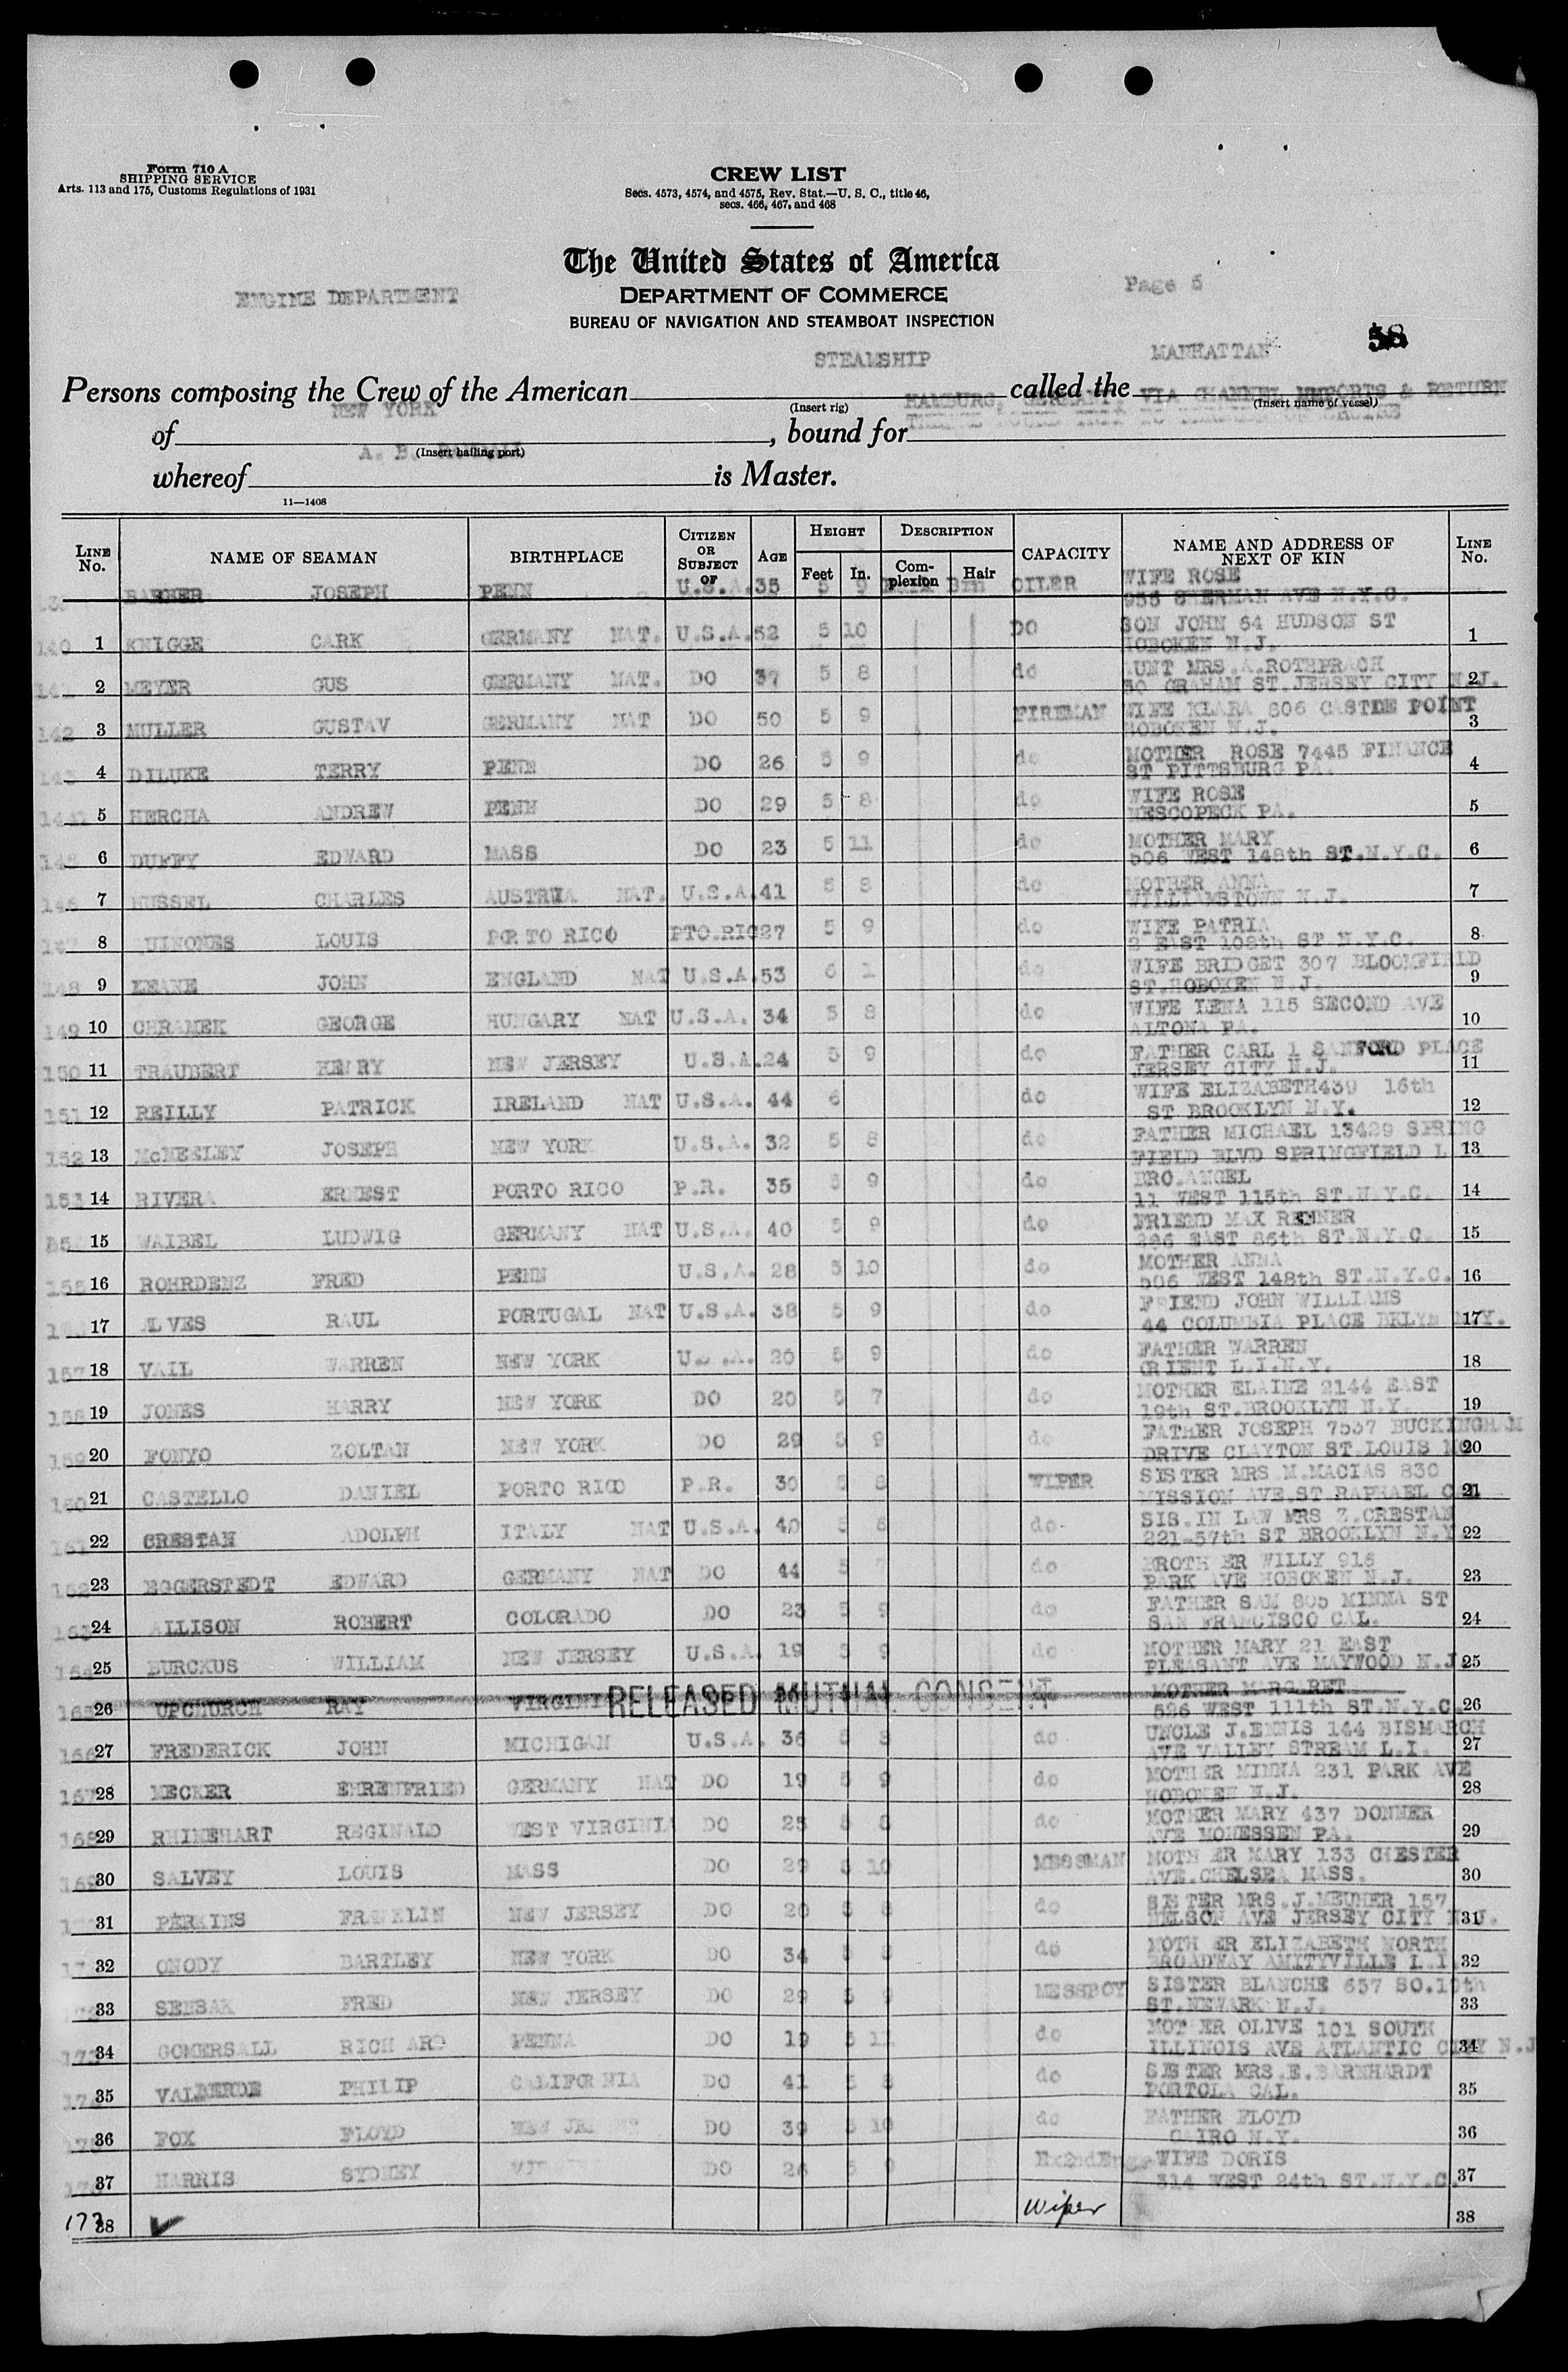 Form 710 A
SHIPPING SERVICE
Arts. 113 and 175, Customs Regulations of 1931
CREW LIST
Secs. 4573, 4574, and 4575, Rev. Stat.—U. S. C., title 46,
secs. 466, 467, and 468
The United States of America
ENGINE DEPARTMENT
DEPARTMENT OF COMMERCE
Page 5
BUREAU OF NAVIGATION AND STEAMBOAT INSPECTION
58
STEAMSHIP MANHATTAN
Persons composing the Crew of the American called the
(Insert rig) (Insert name of vessel)
NEW YORK HAMBURG, GERMANY, VIA CHANNEL PORTS & RETURN
of , bound for
(Insert hailing port)
A. B. RANDALL
whereof is Master.
11—1408
LINE No. NAME OF SEAMAN BIRTHPLACE CITIZEN OR SUBJECT OF AGE HEIGHT Feet In. DESCRIPTION Complexion Hair CAPACITY NAME AND ADDRESS OF NEXT OF KIN LINE No.
BARBER JOSEPH PENN U.S.A. 35 5 9 Brn OILER WIFE ROSE
955 SHERMAN AVE N.Y.C.
140 1 KNIGGE CARK GERMANY NAT. U.S.A. 52 5 10 DO SON JOHN 64 HUDSON ST 1
HOBOKEN N.J.
2 MEYER GUS GERMANY NAT. DO 37 5 8 do AUNT MRS.A.ROTHPRACH 2
30 GRAHAM ST.JERSEY CITY N.J.
142 3 MULLER GUSTAV GERMANY NAT DO 50 5 9 FIREMAN WIFE KLARA 606 CASTLE POINT 3
HOBOKEN N.J.
143 4 DILUKE TERRY PENN DO 26 5 9 do MOTHER ROSE 7445 FINANCE 4
ST PITTSBURG PA.
144 5 HERCHA ANDREW PENN DO 29 5 8 do WIFE ROSE 5
NESCOPECK PA.
145 6 DUFFY EDWARD MASS DO 23 5 11 do MOTHER MARY 6
506 WEST 148th ST.N.Y.C.
146 7 NUSSEL CHARLES AUSTRIA NAT. U.S.A. 41 5 8 do MOTHER ANNA 7
WILLIAMSTOWN N.J.
147 8 QUINONES LOUIS PORTO RICO PTO.RIC 27 5 9 do WIFE PATRIA 8
2 EAST 108th ST N.Y.C.
148 9 KEANE JOHN ENGLAND NAT U.S.A. 53 6 1 do WIFE BRIDGET 307 BLOOMFIELD 9
ST.HOBOKEN N.J.
149 10 CHRAMEK GEORGE HUNGARY NAT U.S.A. 34 5 8 do WIFE LENA 115 SECOND AVE 10
ALTONA PA.
150 11 TRAUBERT HENRY NEW JERSEY U.S.A. 24 5 9 do FATHER CARL 1 SANFORD PLACE 11
JERSEY CITY N.J.
151 12 REILLY PATRICK IRELAND NAT U.S.A. 44 6 do WIFE ELIZABETH439 16th 12
ST BROOKLYN N.Y.
152 13 McNEELEY JOSEPH NEW YORK U.S.A. 32 5 8 do FATHER MICHAEL 13429 SPRING 13
FIELD BLVD SPRINGFIELD L
153 14 RIVERA ERNEST PORTO RICO P.R. 35 5 9 do BRO.ANGEL 14
11 WEST 115th ST.N.Y.C.
15 WAIBEL LUDWIG GERMANY NAT U.S.A. 40 5 9 do FRIEND MAX RENNER 15
286 EAST 86th ST.N.Y.C.
155 16 ROHRDENZ FRED PENN U.S.A. 28 5 10 do MOTHER ANNA 16
506 WEST 148th ST.N.Y.C.
17 ALVES RAUL PORTUGAL NAT U.S.A. 38 5 9 do FRIEND JOHN WILLIAMS 17
44 COLUMBIA PLACE BKLYN N.Y.
157 18 VAIL WARREN NEW YORK U.S.A. 20 5 9 do FATHER WARREN 18
ORIENT L.I.N.Y.
158 19 JONES HARRY NEW YORK DO 20 5 7 do MOTHER ELAINE 2144 EAST 19
19th ST.BROOKLYN N.Y.
159 20 FONYO ZOLTAN NEW YORK DO 29 5 9 do FATHER JOSEPH 7537 BUCKINGHAM 20
DRIVE CLAYTON ST.LOUIS MO
160 21 CASTELLO DANIEL PORTO RICO P.R. 30 5 8 WIPER SISTER MRS M.MACIAS 830 21
MISSION AVE.ST RAPHAEL
161 22 CRESTAN ADOLPH ITALY NAT U.S.A. 40 5 8 do SIS.IN LAW MRS Z.CRESTAN 22
221-57th ST BROOKLYN N.Y
162 23 EGGERSTEDT EDWARD GERMANY NAT DO 44 5 do BROTHER WILLY 916 23
PARK AVE HOBOKEN N.J.
163 24 ALLISON ROBERT COLORADO DO 23 5 9 do FATHER SAM 805 MINNA ST 24
SAN FRANCISCO CAL.
164 25 BURCKUS WILLIAM NEW JERSEY U.S.A. 19 5 9 do MOTHER MARY 21 EAST 25
PLEASANT AVE MAYWOOD N.J
165 26 UPCHURCH RAY VIRGINI RELEASED MUTUAL CONSENT MOTHER MARGARET 26
526 WEST 111th ST.N.Y.C.
166 27 FREDERICK JOHN MICHIGAN U.S.A. 36 5 8 do UNCLE J.ENNIS 144 BISMARCH 27
AVE VALLEY STREAM L.I.
167 28 MECKER EHRENFRIED GERMANY NAT DO 19 5 9 do MOTHER MINNA 231 PARK AVE 28
HOBOKEN N.J.
168 29 RHINEHART REGINALD WEST VIRGINIA DO 25 5 8 do MOTHER MARY 437 DONNER 29
AVE MONESSEN PA.
169 30 SALVEY LOUIS MASS DO 29 5 10 MESSMAN MOTHER MARY 133 CHESTER 30
AVE.CHELSEA MASS.
31 PERKINS FRANKLIN NEW JERSEY DO 20 5 8 do SISTER MRS.J.MEUMER 157 31
NELSON AVE JERSEY CITY N.J.
32 ONODY BARTLEY NEW YORK DO 34 5 8 do MOTHER ELIZABETH NORTH 32
BROADWAY AMITYVILLE L.I.
33 SENSAK FRED NEW JERSEY DO 29 5 9 MESSBOY SISTER BLANCHE 657 SO.10th 33
ST.NEWARK N.J.
34 GOMERSALL RICHARD PENNA DO 19 5 11 do MOTHER OLIVE 101 SOUTH 34
ILLINOIS AVE ATLANTIC CITY N.J
35 VALVERDE PHILIP CALIFORNIA DO 41 5 8 do SISTER MRS.E.BARNHARDT 35
PORTOLA CAL.
36 FOX FLOYD NEW JERSEY DO 39 5 10 do FATHER FLOYD 36
CAIRO N.Y.
37 HARRIS SYDNEY DO 26 5 9 Ex2ndEngr WIFE DORIS 37
314 WEST 24th ST.N.Y.C.
177 38 ✓ Wiper 38